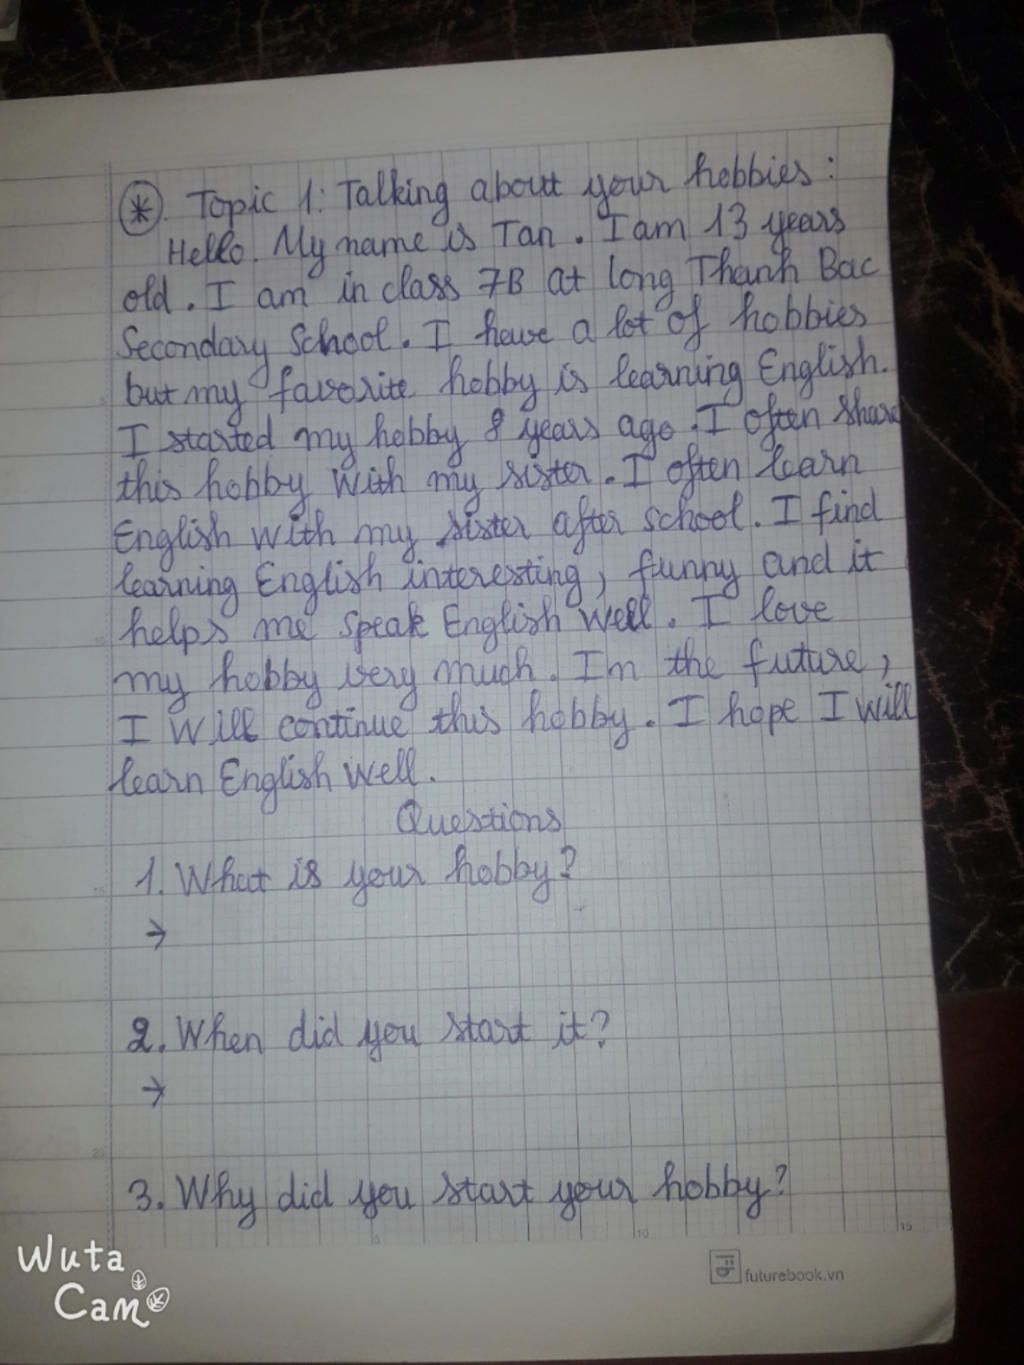 * Topic 1: Talking about your hobbies:
Hello. My name is Tan. I am 13 years
old. I am in class 7B at long Thanh Bac
Secondary School. I have a lot of hobbies
but my favorite hobby is learning English.
I started my hobby 8 years ago. I often share
this hobby with my sister. I often learn
English with my sister after school. I find
learning English interesting, funny and it
helps me speak English well. I love
my hobby very much. In the future,
I will continue this hobby. I hope I will
learn English well.
Questions
1. What is your hobby?
→
2. When did you start it?
→
3. Why did you start your hobby?
futurebook.vn
Wuta
Cam
5
10
15